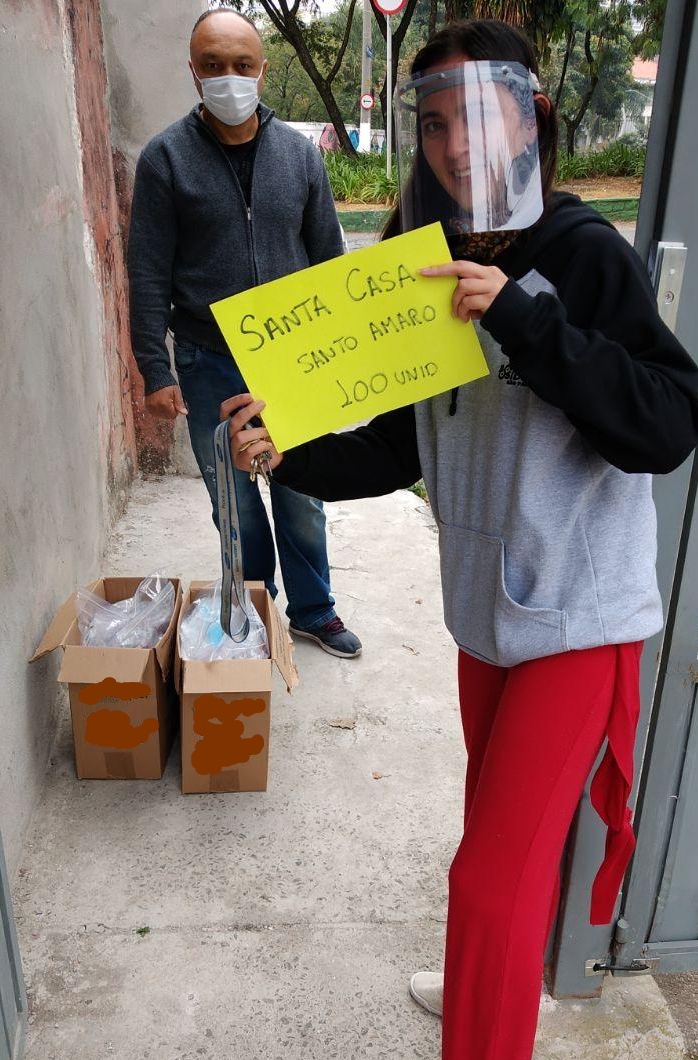 SANTA CASA
SANTO AMARO
100 UNID